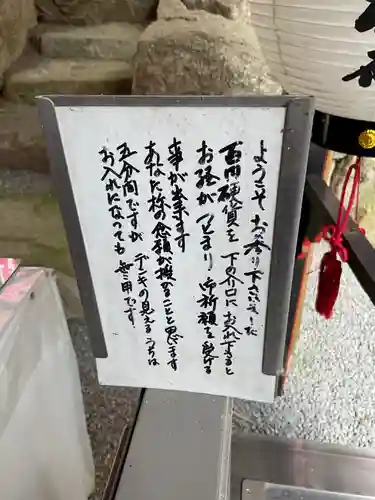 ようこそお参り下さいました
百円硬貨を下の口にお入れ下さると
お経が始まり御祈願を受ける
事が出来ます
あなた様の念願が叶なることと思います
五分間ですがデンキの見えるうちは
お入れになっても無用です。